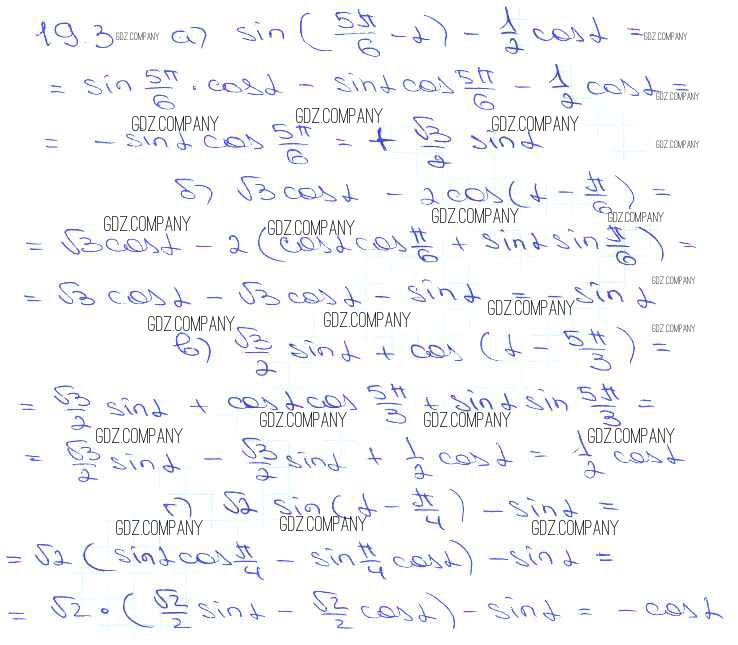 19.3 GDZ.COMPANY а) sin(5π/6 - α) - 1/2 cosα = GDZ.COMPANY
= sin 5π/6 · cosα - sinα cos 5π/6 - 1/2 cosα = GDZ.COMPANY
GDZ.COMPANY GDZ.COMPANY GDZ.COMPANY
= - sinα cos 5π/6 = + √3/2 sinα GDZ.COMPANY
б) √3 cosα - 2cos(α - π/6) =
GDZ.COMPANY GDZ.COMPANY GDZ.COMPANY GDZ.COMPANY
= √3 cosα - 2(cosα cos π/6 + sinα sin π/6) =
GDZ.COMPANY
= √3 cosα - √3 cosα - sinα = - sinα
GDZ.COMPANY GDZ.COMPANY GDZ.COMPANY GDZ.COMPANY
в) √3/2 sinα + cos(α - 5π/3) =
= √3/2 sinα + cosα cos 5π/3 + sinα sin 5π/3 =
GDZ.COMPANY GDZ.COMPANY GDZ.COMPANY GDZ.COMPANY
= √3/2 sinα - √3/2 sinα + 1/2 cosα = 1/2 cosα
г) √2 sin(α - π/4) - sinα =
GDZ.COMPANY GDZ.COMPANY GDZ.COMPANY
= √2(sinα cos π/4 - sin π/4 cosα) - sinα =
= √2 · (√2/2 sinα - √2/2 cosα) - sinα = - cosα